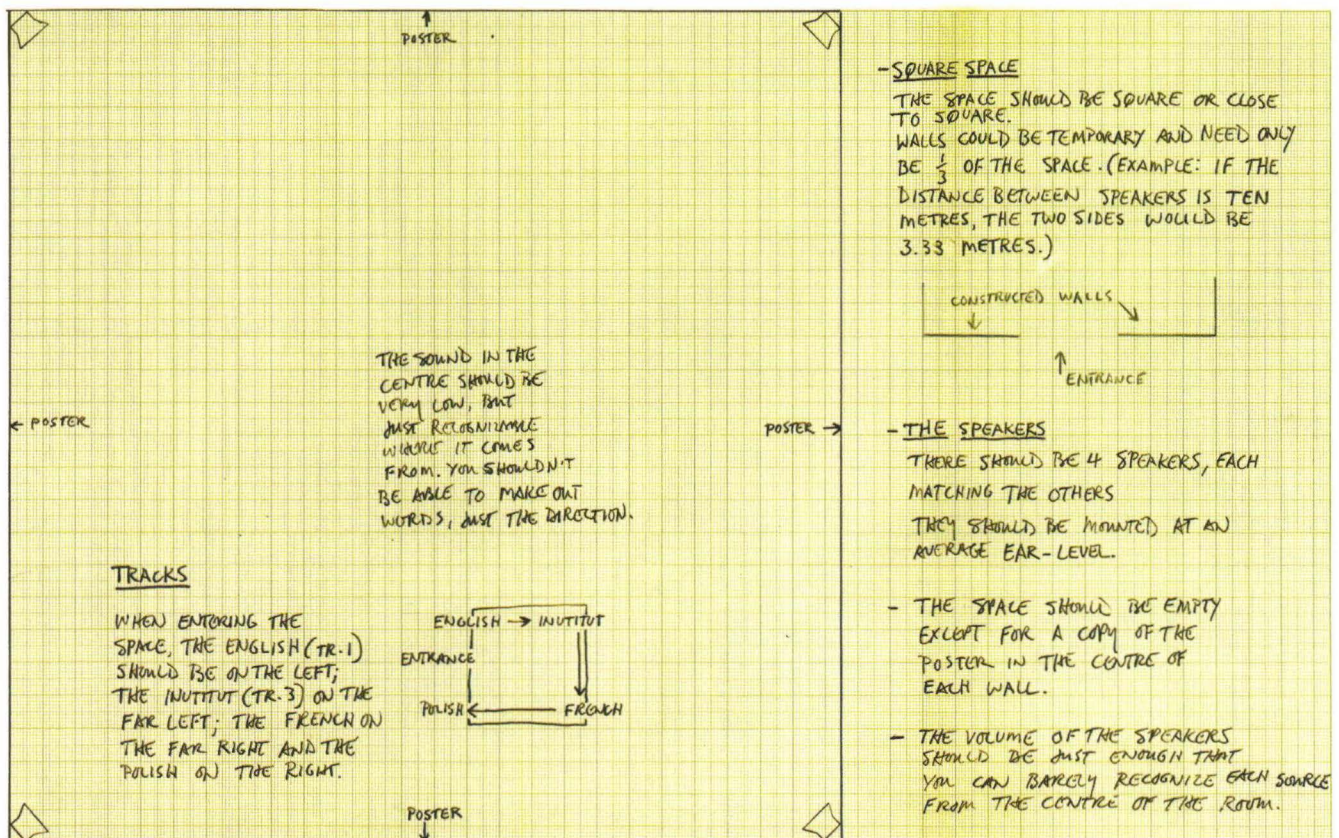 POSTER
← POSTER
POSTER →
THE SOUND IN THE
CENTRE SHOULD BE
VERY LOW, BUT
JUST RECOGNIZABLE
WHERE IT COMES
FROM. YOU SHOULDN'T
BE ABLE TO MAKE OUT
WORDS, JUST THE DIRECTION.
TRACKS
WHEN ENTERING THE
SPACE, THE ENGLISH (TR.1)
SHOULD BE ON THE LEFT;
THE INUTITUT (TR.3) ON THE
FAR LEFT; THE FRENCH ON
THE FAR RIGHT AND THE
POLISH ON THE RIGHT.
ENGLISH → INUTITUT
ENTRANCE
POLISH ← FRENCH
POSTER
- SQUARE SPACE
THE SPACE SHOULD BE SQUARE OR CLOSE
TO SQUARE.
WALLS COULD BE TEMPORARY AND NEED ONLY
BE 1/3 OF THE SPACE. (EXAMPLE: IF THE
DISTANCE BETWEEN SPEAKERS IS TEN
METRES, THE TWO SIDES WOULD BE
3.33 METRES.)
CONSTRUCTED WALLS
ENTRANCE
- THE SPEAKERS
THERE SHOULD BE 4 SPEAKERS, EACH
MATCHING THE OTHERS
THEY SHOULD BE MOUNTED AT AN
AVERAGE EAR-LEVEL.
- THE SPACE SHOULD BE EMPTY
EXCEPT FOR A COPY OF THE
POSTER IN THE CENTRE OF
EACH WALL.
- THE VOLUME OF THE SPEAKERS
SHOULD BE JUST ENOUGH THAT
YOU CAN BARELY RECOGNIZE EACH SOURCE
FROM THE CENTRE OF THE ROOM.